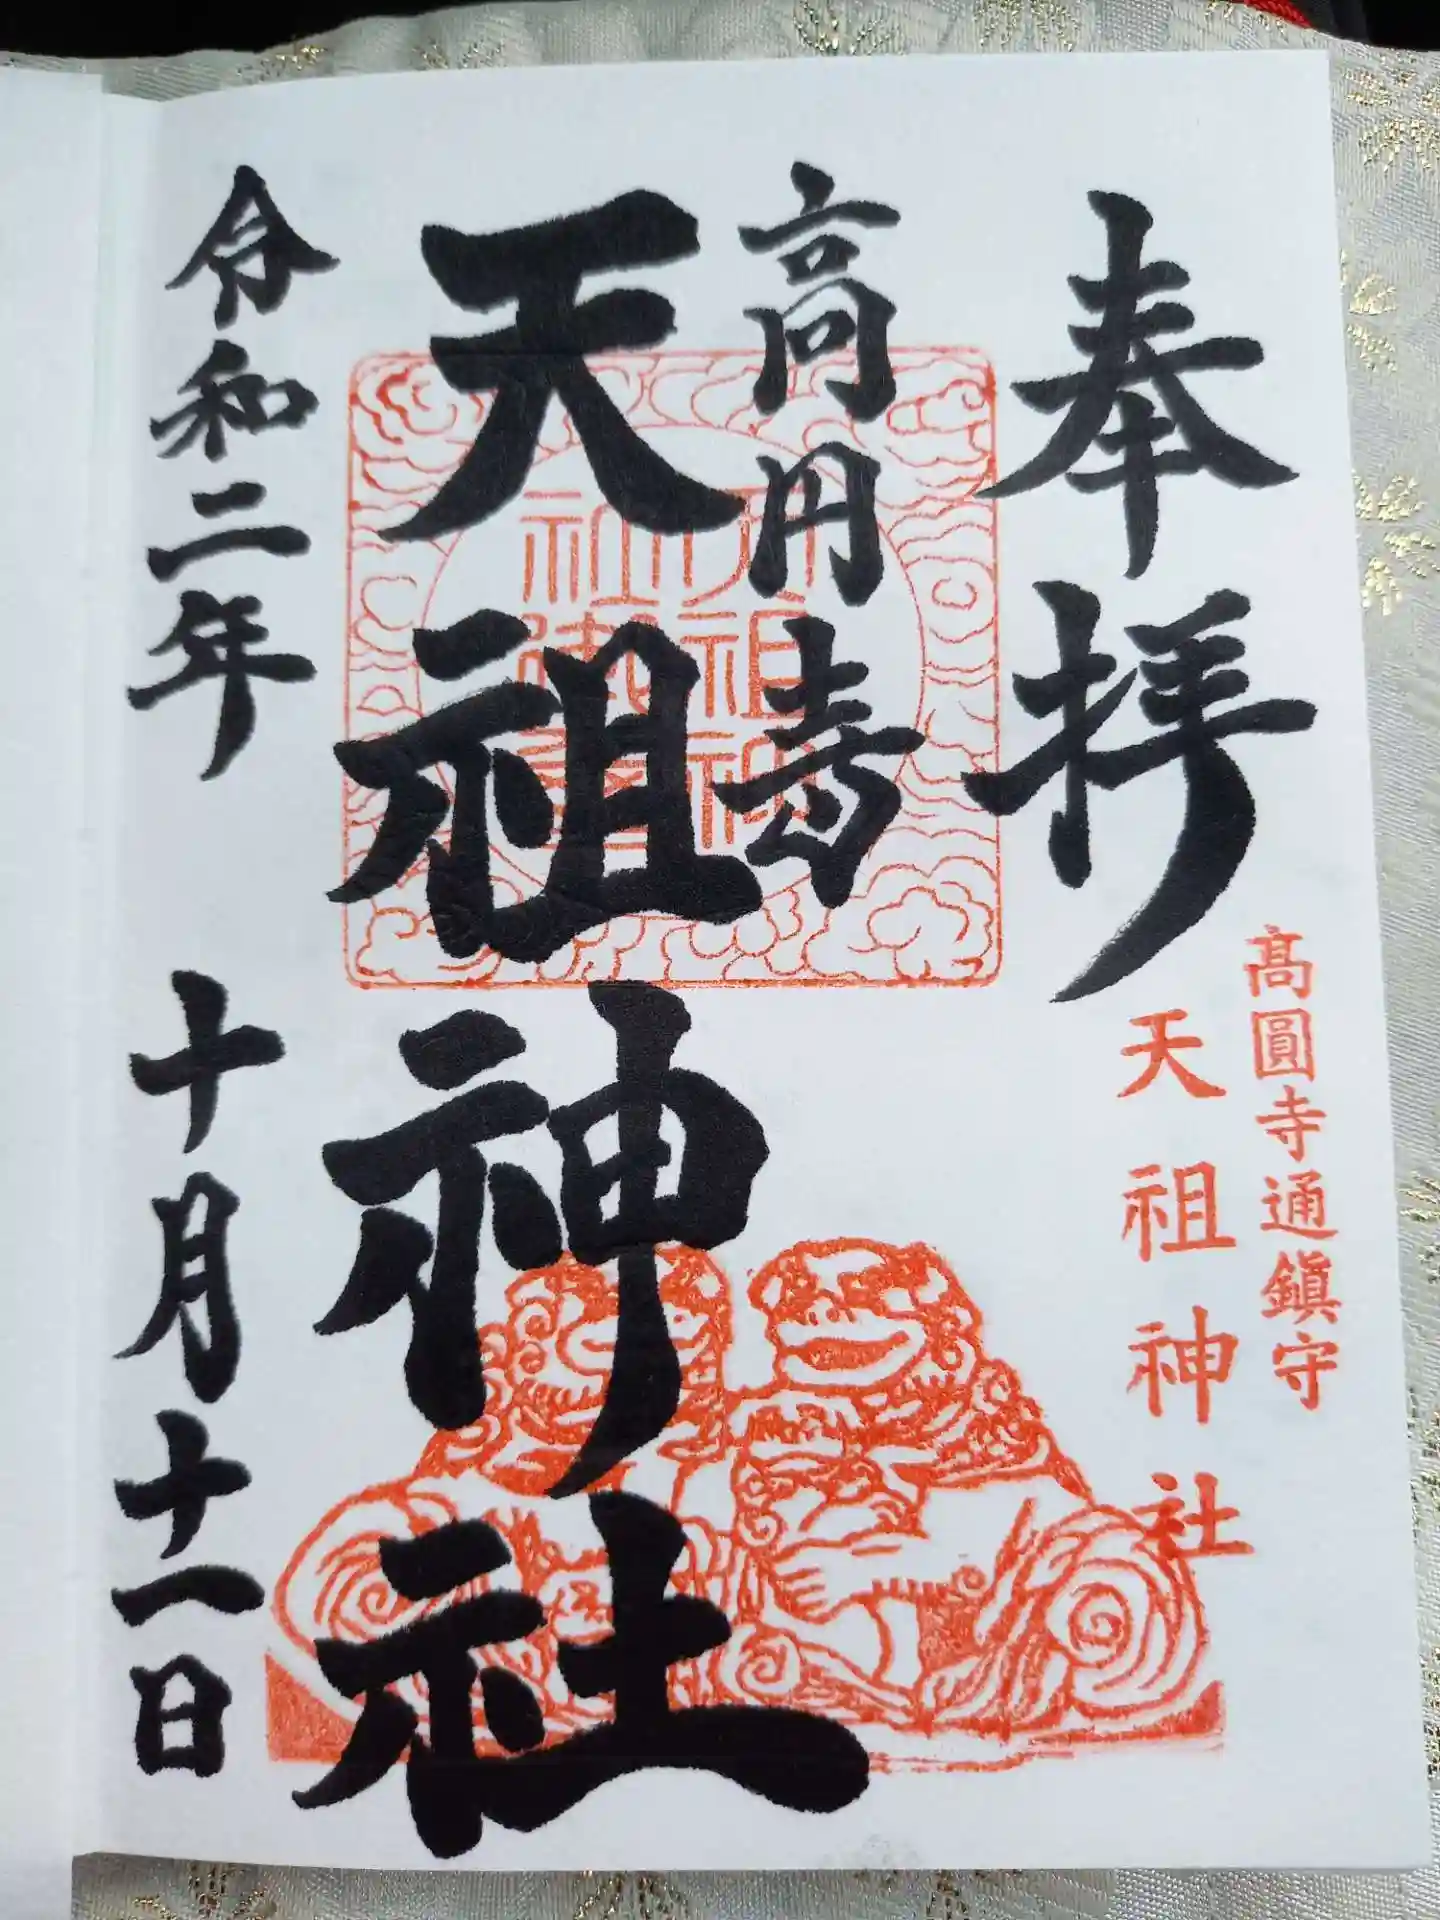 奉拝
髙圓寺通鎮守
天祖神社
高円寺
天祖神社
天祖神
社御璽
令和二年 十月十一日